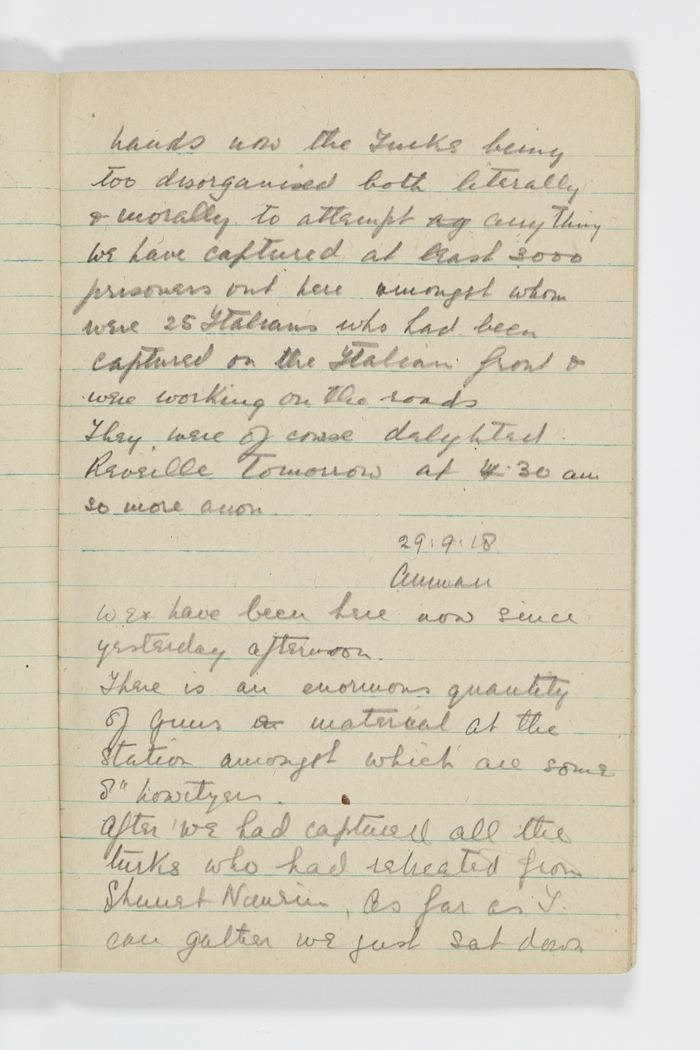 hands now the Turks being
too disorganised both literally
& morally to attempt any thing
we have captured at least 3000
prisoners out here amongst whom
were 25 Italians who had been
captured on the Italian front &
were working on the roads
They were of couse delyhted.
Reveille tomorrow at 4.30 am
so more anon.
29.9.18
Amman
We have been here now since
yesterday afternoon.
There is an enormous quantity
of guns material at the
Station amongst which are some
8" howityers.
After we had captured all the
turks who had retreated from
Shunet Nimrin, as far as I.
can gather we just sat down